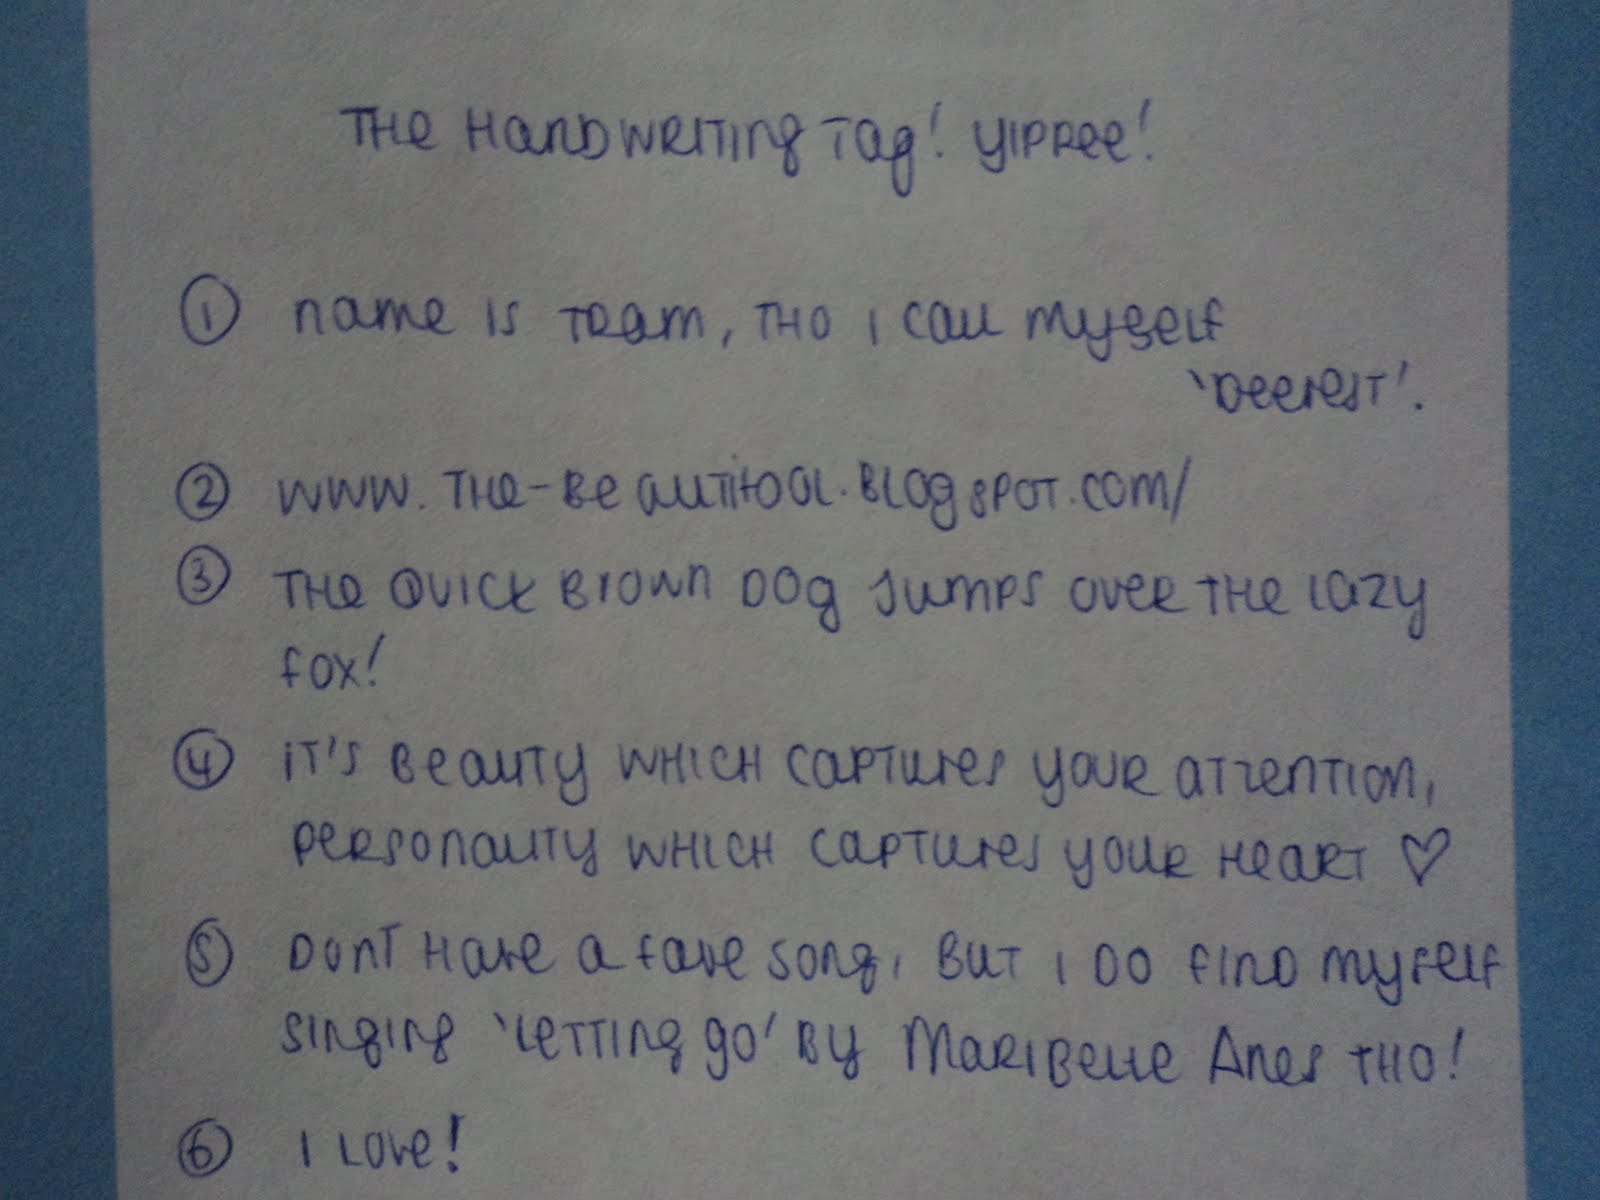 THE HANDWRITING TAG! YIPPEE!
① name is Tram, THO I call myself
'Deerest'.
② WWW.THE-BEAUTIHOOL.BLOGSPOT.COM/
③ THE QUICK BROWN DOG JUMPS OVER THE LAZY
FOX!
④ IT'S BEAUTY WHICH CAPTURES YOUR ATTENTION,
PERSONALITY WHICH CAPTURES YOUR HEART ♡
⑤ DONT HAVE A FAVE SONG, BUT I DO FIND MYSELF
SINGING 'LETTING GO' BY MARIBELLE ANES THO!
⑥ I LOVE!